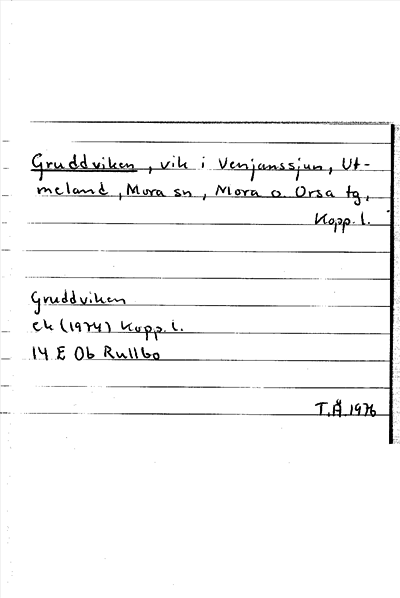 Gruddviken, vik i Venjanssjun, Ut-
meland, Mora sn, Mora o. Orsa tg,
Kopp. l.
Gruddviken
ek (1974) Kopp. l.
14 E Ob Rullbo
T.Å 1976